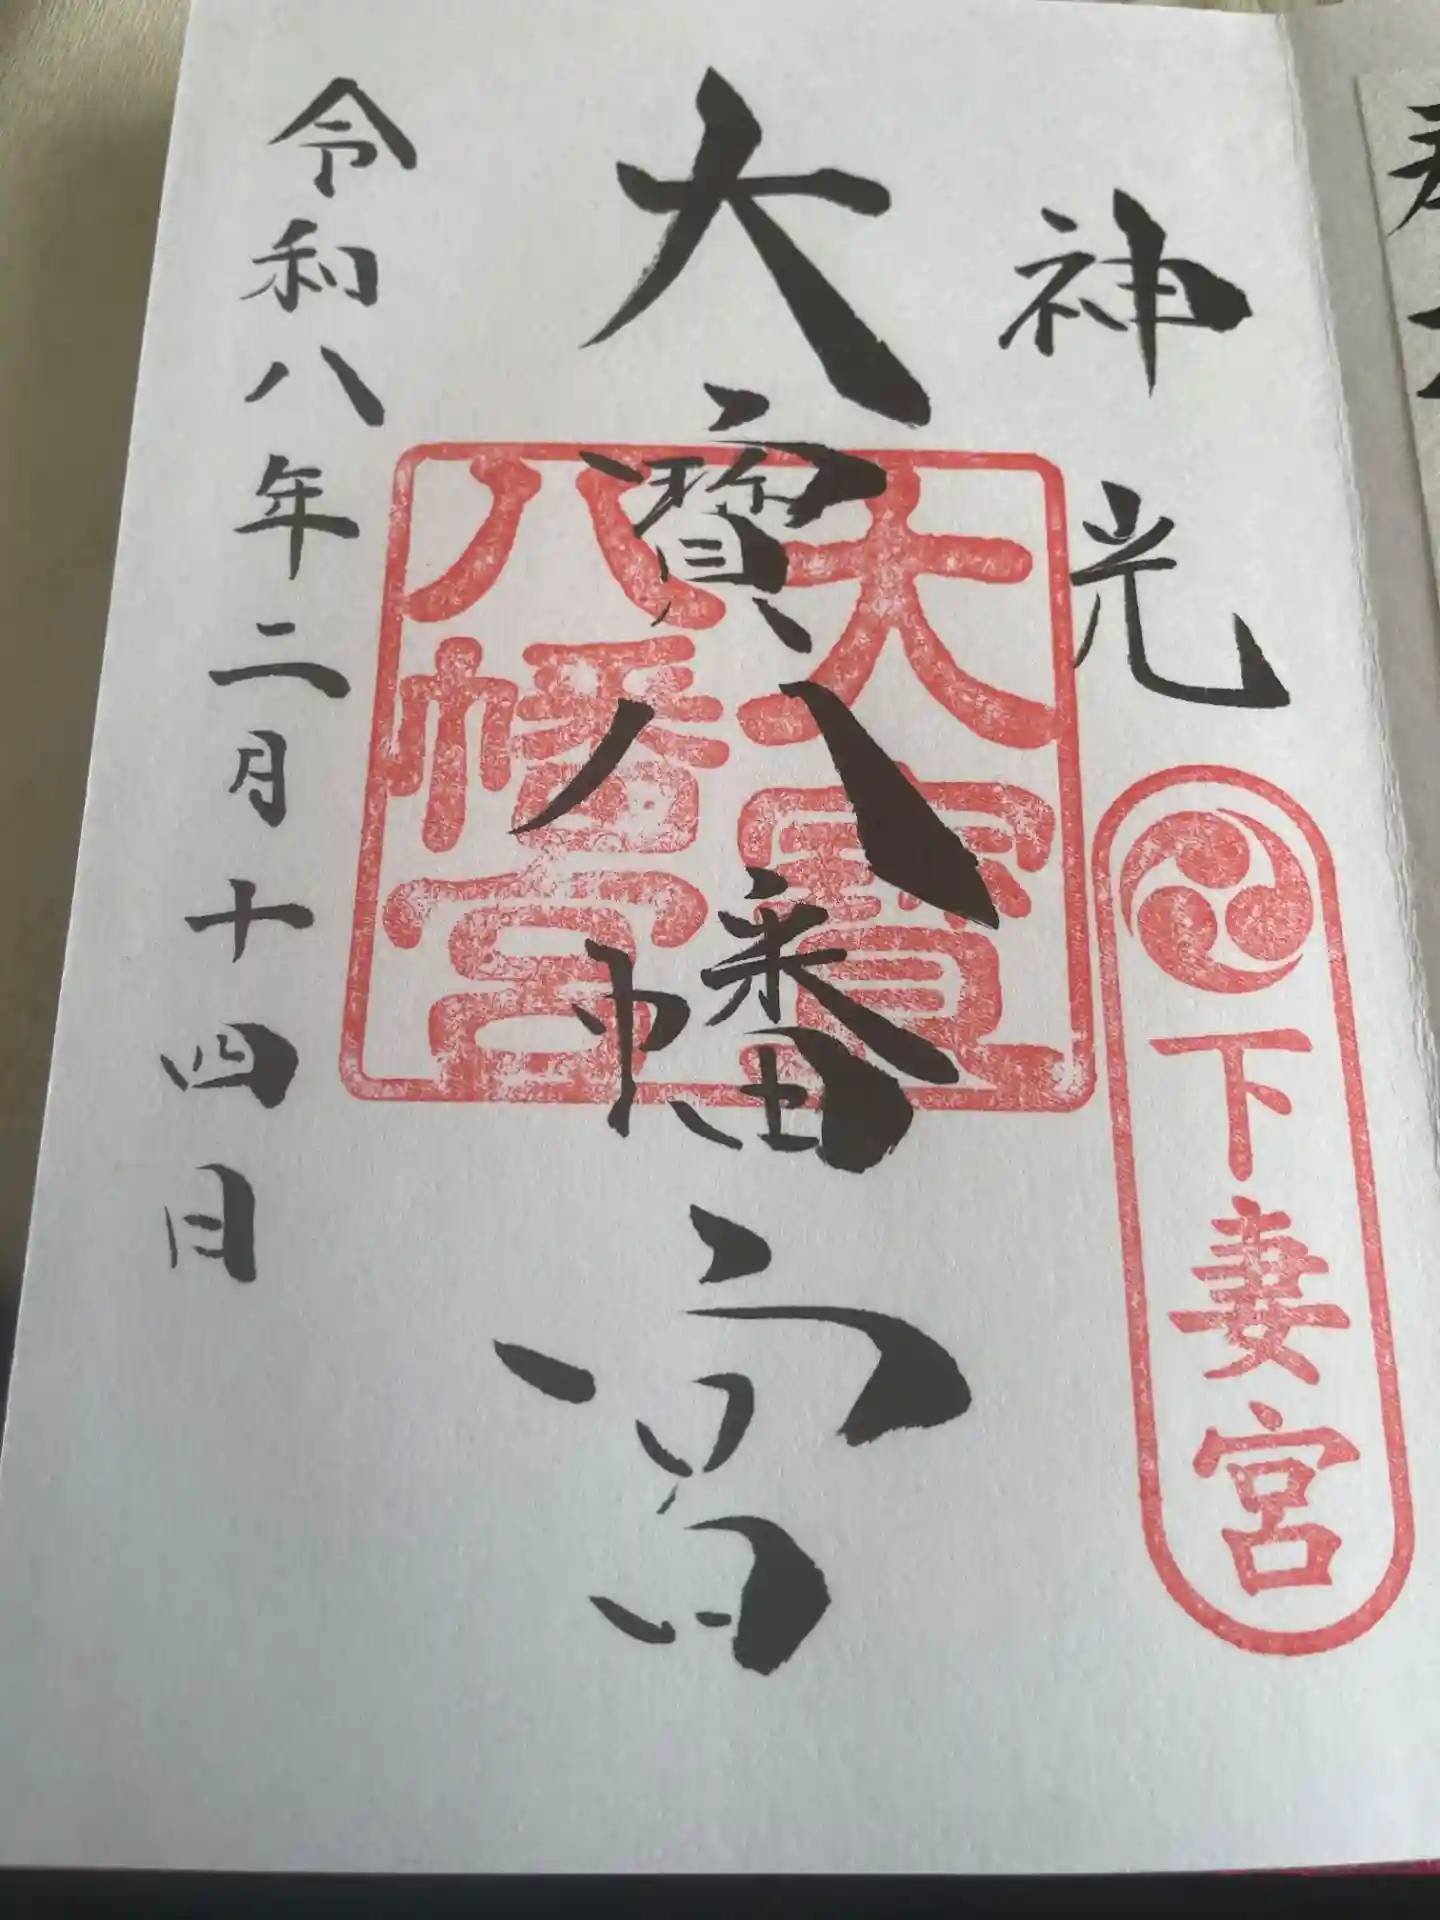 神光
下妻宮
大寳八幡宮
大寳
八幡宮
令和八年二月十四日